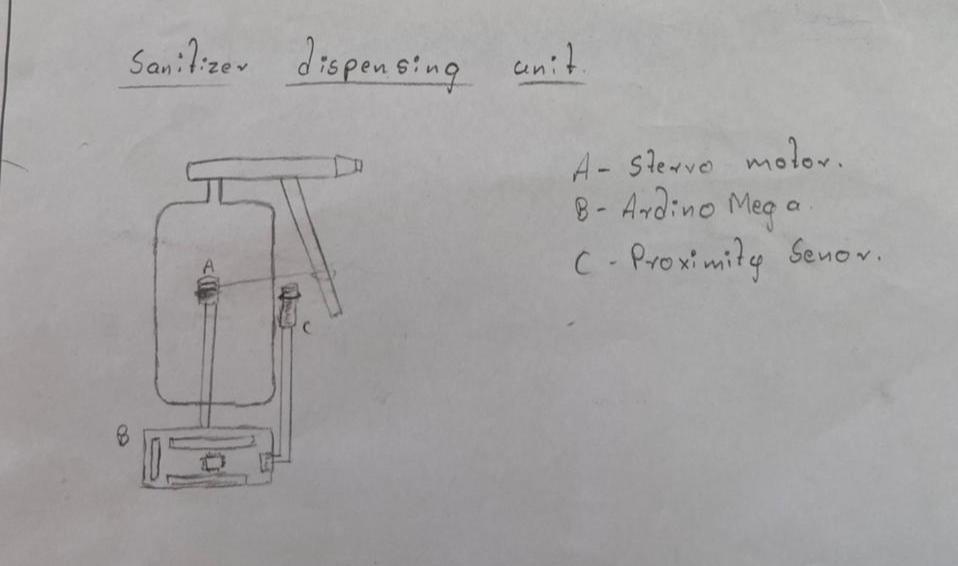 Sanitizer dispensing unit.
A - Stervo motor.
B - Ardino Mega.
C - Proximity Senor.
A
C
B